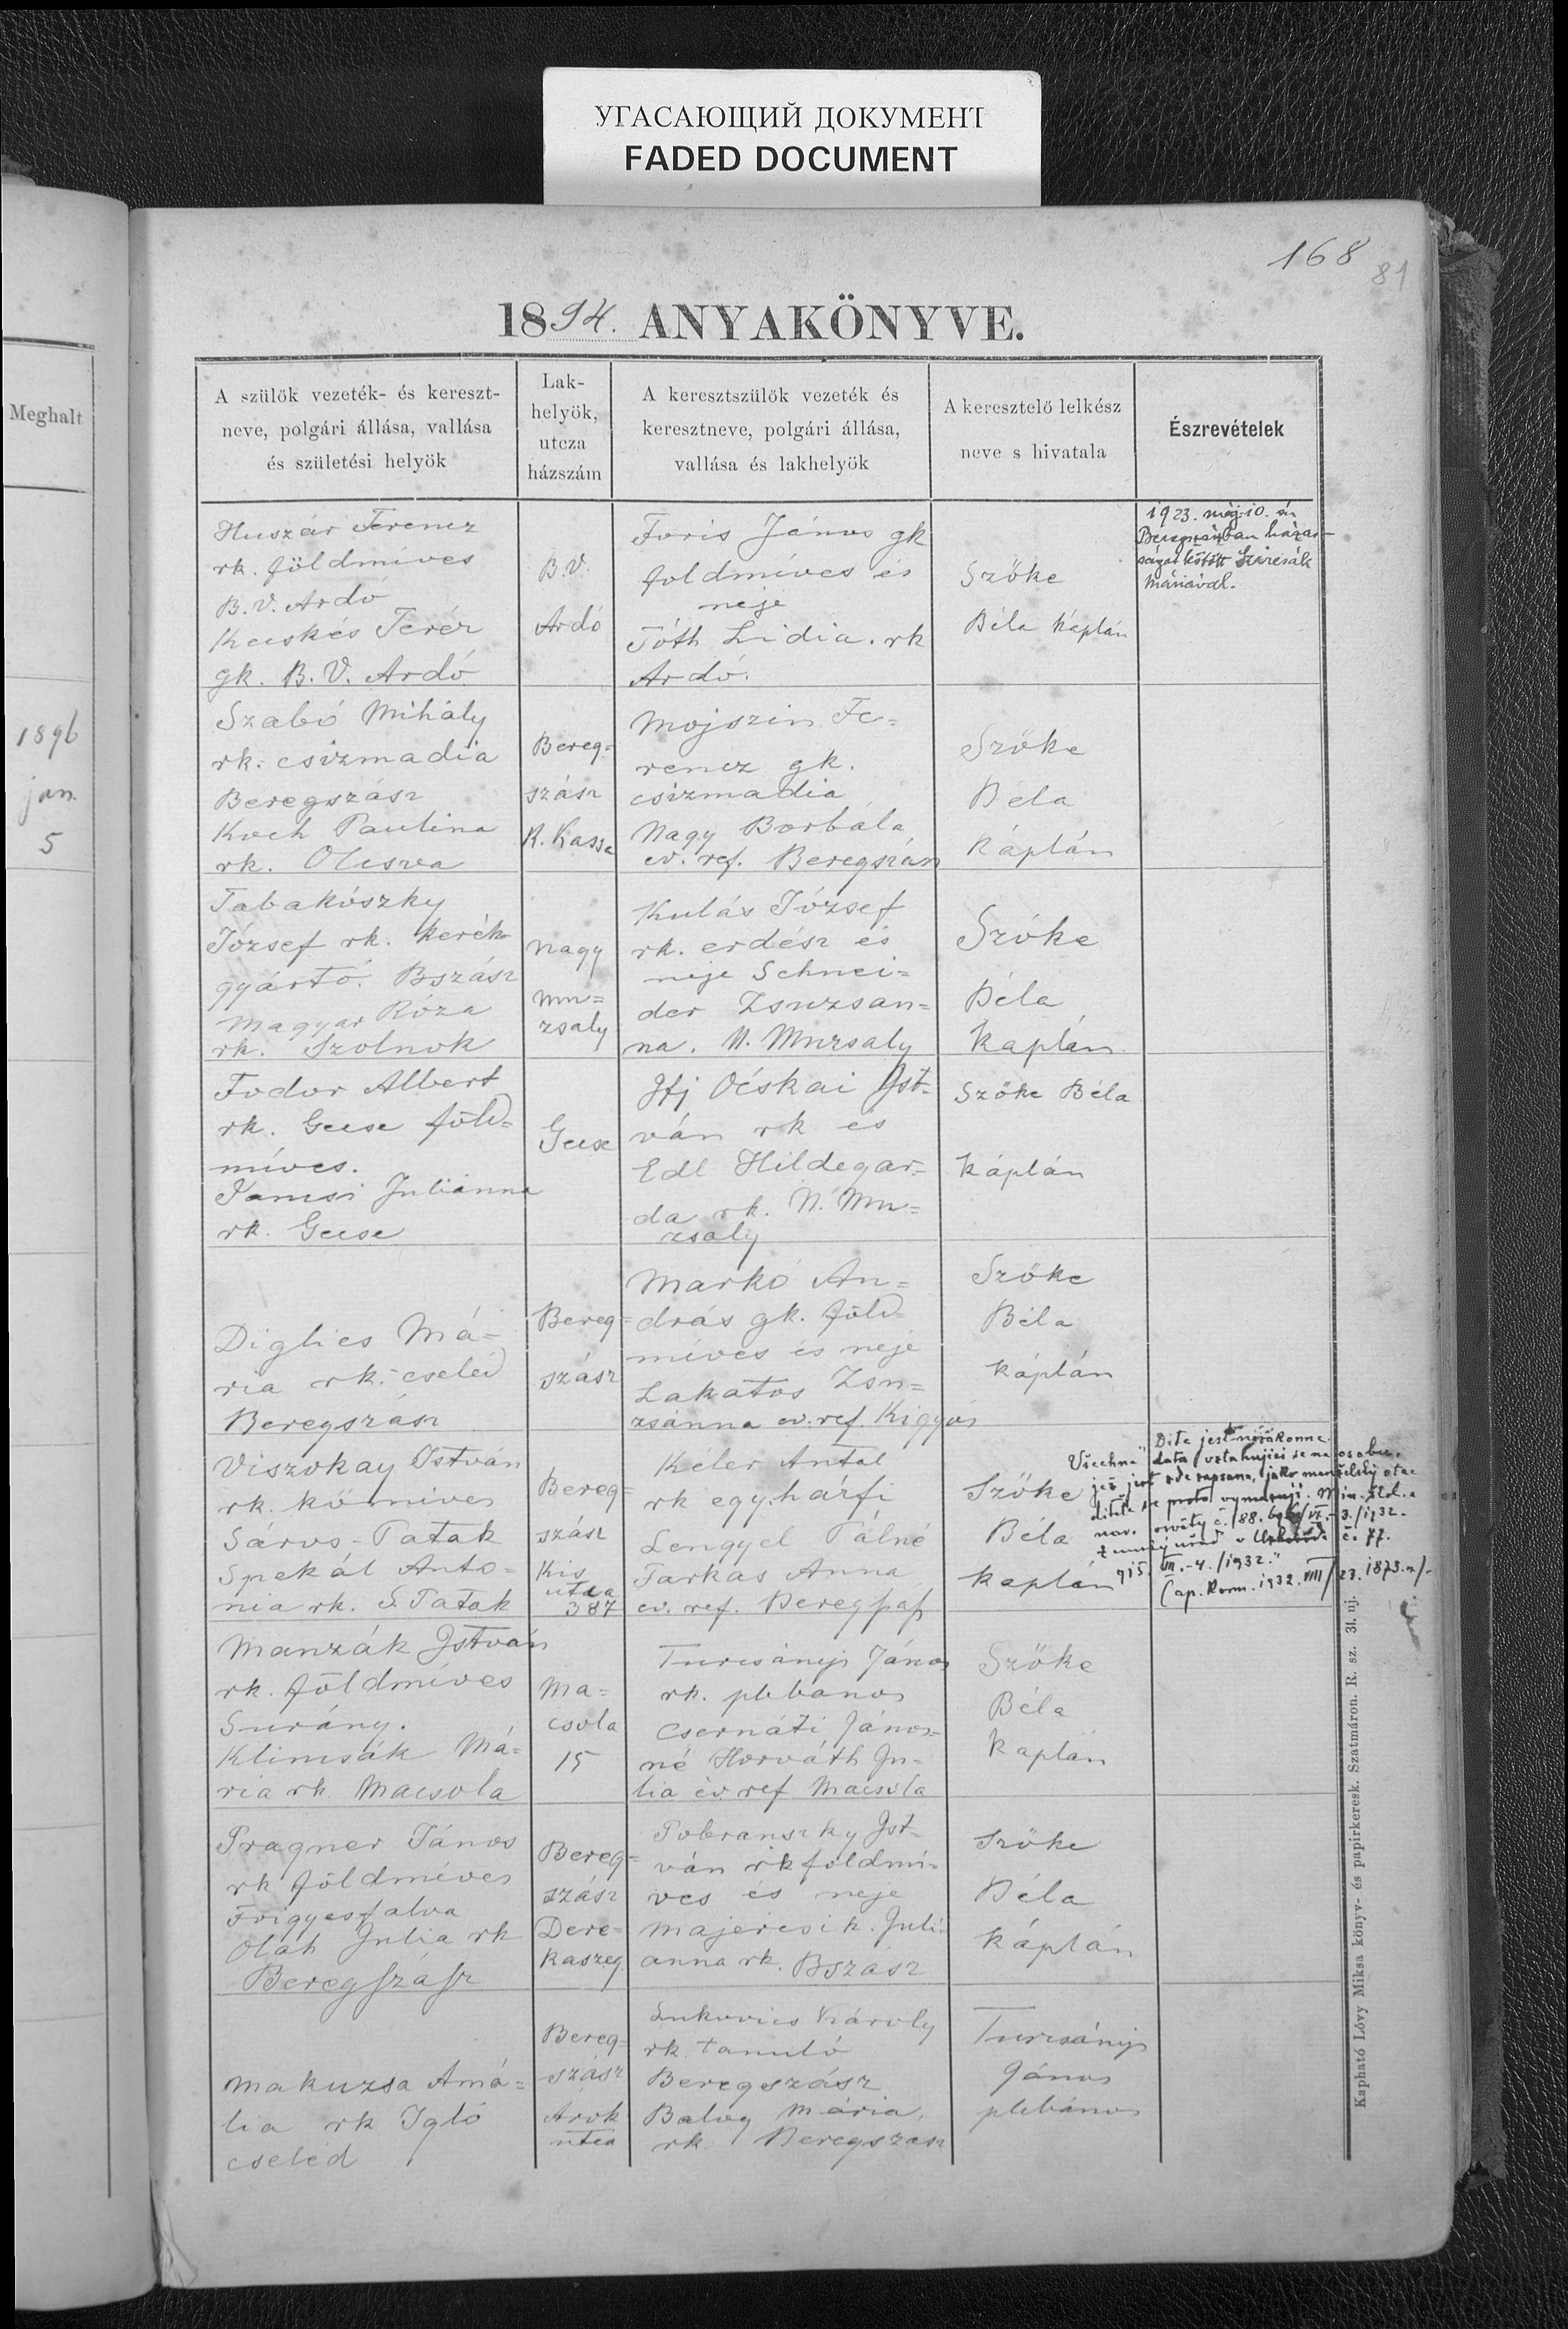 УГАСАЮЩИЙ ДОКУМЕНТ
FADED DOCUMENT
168
81
1894. ANYAKÖNYVE.
Meghalt
1896
jan.
5
A szülök vezeték- és kereszt-
neve, polgári állása, vallása
és születési helyök
Lak-
helyök,
utcza
házszám
A keresztszülök vezeték és
keresztneve, polgári állása,
vallása és lakhelyök
A keresztelő lelkész
neve s hivatala
Észrevételek
Huszár Ferencz
rk. földmíves
B.V. Ardó
Kecskés Teréz
gk. B.V. Ardó
B.V.
Ardó
Foris János gk
földmíves és
neje
Tóth Lidia. rk
Ardó.
Szőke
Béla káplán
1923. máj. 10. én
Beregszászban házas-
ságot kötött
Máriával.
Szabó Mihály
rk. csizmadia
Beregszász
Koch Paulina
rk. Olcsva
Bereg=
szász
K. Kassa
Mojszin Fe=
rencz gk.
csizmadia
Nagy Borbála
ev. ref. Beregszász
Szőke
Béla
káplán
Tabakószky
József rk. kerék
gyártó. Bszász
Magyar Róza
rk. Szolnok
Nagy
Mu=
zsaly
Kulás József
rk. erdész és
neje Schnei=
der Zsuzsan=
na. N. Muzsaly
Szőke
Béla
Káplán
Fodor Albert
rk. Gecse föld=
míves.
Juliánna
rk. Gecse
Gecse
Ifj Ocskai Ist-
ván rk és
Edl Hildegar=
da rk. N. Mu=
zsaly
Szőke Béla
káplán
Diglics Má=
ria rk. cseléd
Beregszász
Bereg=
szász
Markó An=
drás gk. föld=
míves és neje
Lakatos Zsu=
zsánna ev. ref. Kigyós
Szőke
Béla
káplán
Viszokay István
rk. kőmíves
Sáros-Patak
Spekál Antó=
nia rk. S. Patak
Bereg=
szász
Kis
utca
387
Kéler Antal
rk egyhárfi
Lengyel Pálné
Farkas Anna
ev. ref. Beregszász
Szőke
Béla
káplán
Dite jest
Všechna data vztahující se na osobu,
jež jest zde zapsana, jako manželský otec
ditěte se proto vymazují. Min. škol. a
nar. osvěty č. 88. /VI.-3./1932.
úřad v č. 77.
915. VII.-4./1932."
Cap. Rom. 1932. VIII/23. 1873.
Manzák István
rk. földmíves
Surány.
Klimsák Má=
ria rk. Macsola
Ma=
csola
15
Turcsányi János
rk. plébános
Csernáti János=
né Horváth Ju=
lia ev. ref Macsola
Szőke
Béla
káplán
Pragner János
rk földmíves
Frigyesfalva
Oláh Julia rk
Beregszász
Bereg=
szász
Dere=
kaszeg
Pobranszky Ist-
ván rk földmí-
ves és neje
Majercsik Juli-
anna rk. Bszász
Szőke
Béla
káplán
Makuzsa Amá=
lia rk Igló
cseléd
Bereg=
szász
Árok
utca
Lukovics Károly
rk. tanuló
Beregszász
Balog Mária,
rk. Beregszász
Turcsányi
János
plébános
Kapható Lővy Miksa könyv- és papirkeresk. Szatmáron. R. sz. 3l. uj.